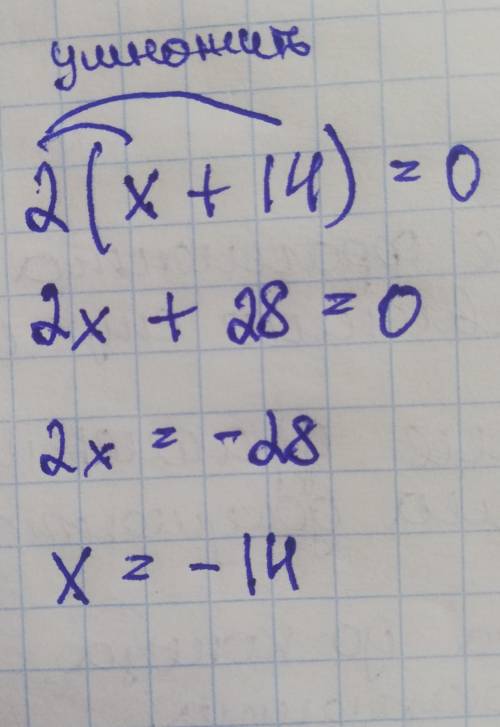 умножить
2(x + 14) = 0
2x + 28 = 0
2x = -28
x = -14